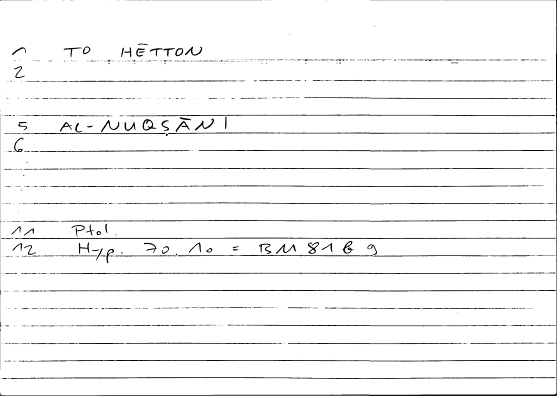 1 TO HĒTTON
2
5 AL-NUQṢĀNI
6
11 Ptol.
12 Hyp. 70.10 = BM 81 B 9